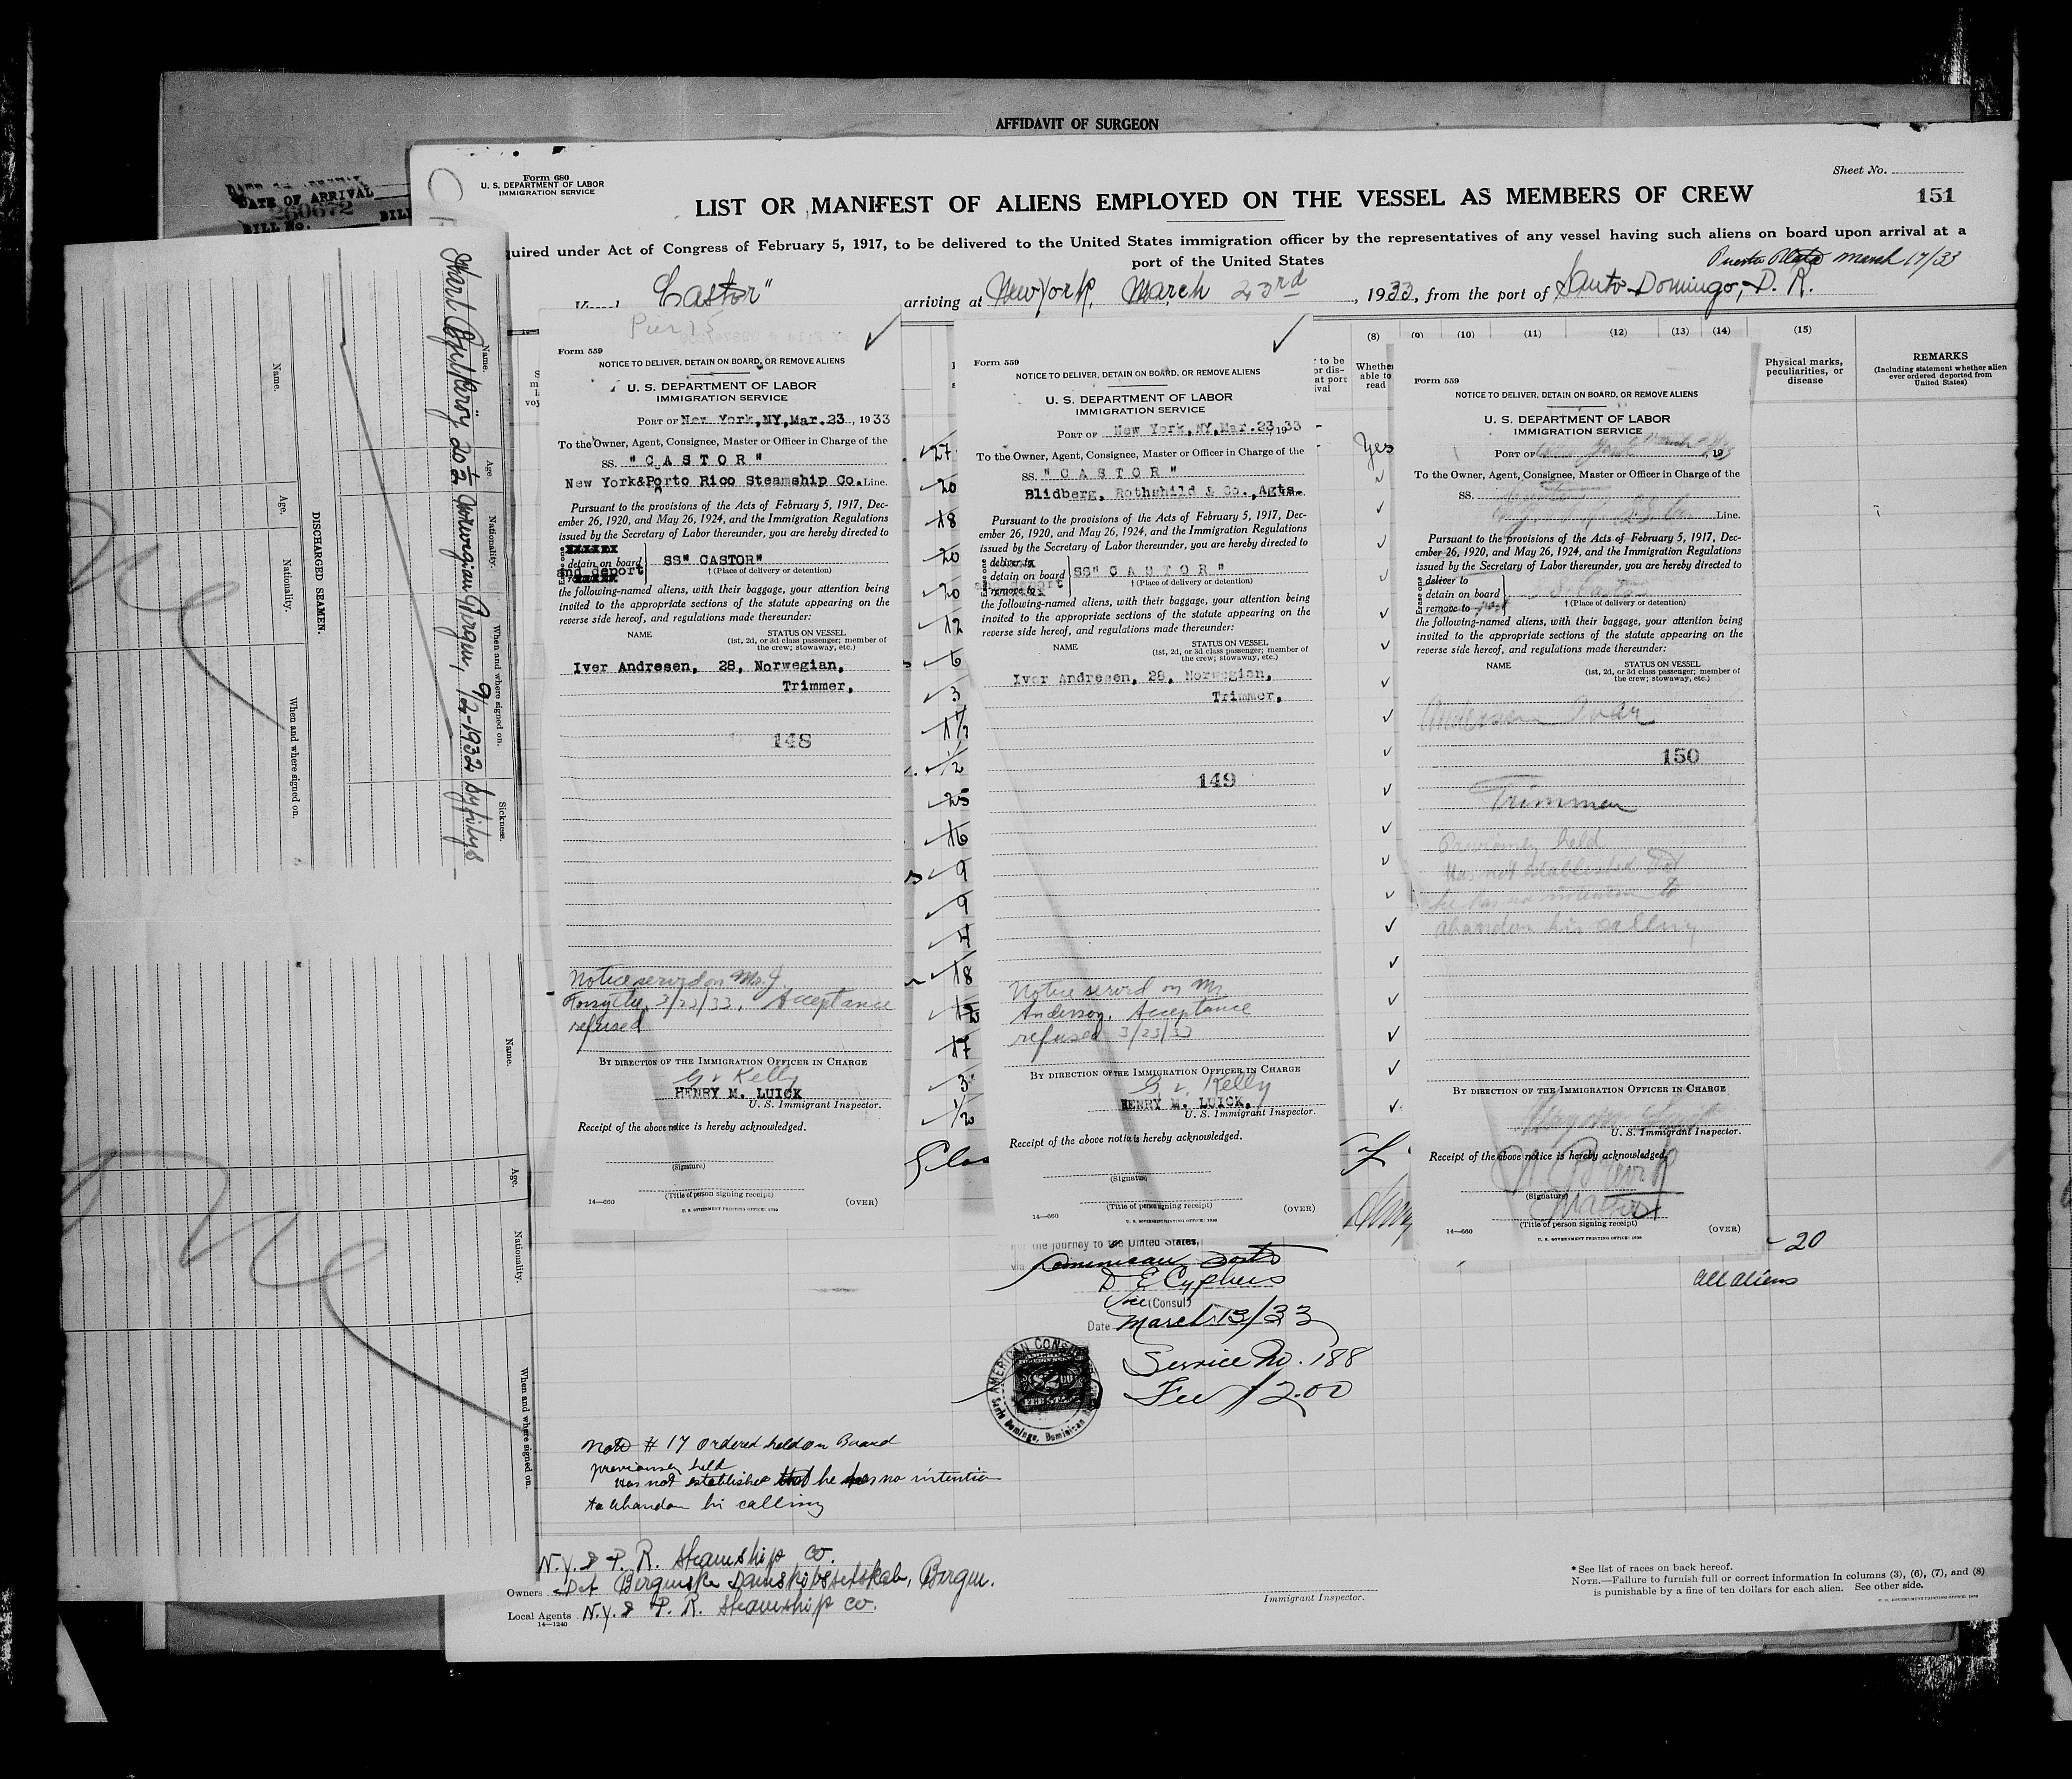 AFFIDAVIT OF SURGEON
DATE OF ARRIVAL
260672
BILL No.
Form 680
U. S. DEPARTMENT OF LABOR
IMMIGRATION SERVICE
Sheet No.
151
LIST OR MANIFEST OF ALIENS EMPLOYED ON THE VESSEL AS MEMBERS OF CREW
quired under Act of Congress of February 5, 1917, to be delivered to the United States immigration officer by the representatives of any vessel having such aliens on board upon arrival at a
port of the United States
Puerto Plata March 17/33
Castor" arriving at New York, March 23rd, 1933, from the port of Santo Domingo, D. R.
(8) (9) (10) (11) (12) (13) (14) (15)
Whether able to read
Physical marks, peculiarities, or disease
REMARKS
(Including statement whether alien ever ordered deported from United States)
Name.
Age.
Nationality.
When and where signed on.
Sickness.
DISCHARGED SEAMEN.
Name.
Age.
Nationality.
When and where signed on.
Name.
Age.
Nationality.
When and where signed on.
Pier 15
Form 559
NOTICE TO DELIVER, DETAIN ON BOARD, OR REMOVE ALIENS
U. S. DEPARTMENT OF LABOR
IMMIGRATION SERVICE
PORT OF New York,NY,Mar.23, 1933
To the Owner, Agent, Consignee, Master or Officer in Charge of the
SS. "CASTOR"
New York&Porto Rico Steamship Co. Line.
Pursuant to the provisions of the Acts of February 5, 1917, Dec-
ember 26, 1920, and May 26, 1924, and the Immigration Regulations
issued by the Secretary of Labor thereunder, you are hereby directed to
detain on board SS" CASTOR"
and deport
† (Place of delivery or detention)
the following-named aliens, with their baggage, your attention being
invited to the appropriate sections of the statute appearing on the
reverse side hereof, and regulations made thereunder:
NAME
STATUS ON VESSEL
(1st, 2d, or 3d class passenger; member of
the crew; stowaway, etc.)
Iver Andresen, 28, Norwegian,
Trimmer,
148
Notice served on Mr. J.
Forsythe, 3/23/33. Acceptance
refused
BY DIRECTION OF THE IMMIGRATION OFFICER IN CHARGE
G v Kelly
HENRY M. LUICK
U. S. Immigrant Inspector.
Receipt of the above notice is hereby acknowledged.
(Signature)
(Title of person signing receipt)
14—660
(OVER)
U. S. GOVERNMENT PRINTING OFFICE: 1930
27
20
18
20
20
12
6
3
1/2
25
16
9
9
4
18
17
3
1/2
Form 559
NOTICE TO DELIVER, DETAIN ON BOARD, OR REMOVE ALIENS
U. S. DEPARTMENT OF LABOR
IMMIGRATION SERVICE
PORT OF New York,NY,Mar.23, 1933
To the Owner, Agent, Consignee, Master or Officer in Charge of the
SS. "CASTOR"
Blidberg, Rothchild & Co., Agts.
Pursuant to the provisions of the Acts of February 5, 1917, Dec-
ember 26, 1920, and May 26, 1924, and the Immigration Regulations
issued by the Secretary of Labor thereunder, you are hereby directed to
deliver to
detain on board SS" CASTOR"
and deport
remove to
† (Place of delivery or detention)
the following-named aliens, with their baggage, your attention being
invited to the appropriate sections of the statute appearing on the
reverse side hereof, and regulations made thereunder:
NAME
STATUS ON VESSEL
(1st, 2d, or 3d class passenger; member of
the crew; stowaway, etc.)
Iver Andresen, 28, Norwegian,
Trimmer,
149
Notice served on Mr
Anderson. Acceptance
refused 3/23/33
BY DIRECTION OF THE IMMIGRATION OFFICER IN CHARGE
G v. Kelly
HENRY M. LUICK,
U. S. Immigrant Inspector.
Receipt of the above notice is hereby acknowledged.
(Signature)
(Title of person signing receipt)
14—660
(OVER)
U. S. GOVERNMENT PRINTING OFFICE: 1930
Yes
Form 559
NOTICE TO DELIVER, DETAIN ON BOARD, OR REMOVE ALIENS
U. S. DEPARTMENT OF LABOR
IMMIGRATION SERVICE
PORT OF New York March 19
To the Owner, Agent, Consignee, Master or Officer in Charge of the
SS.
Line.
Pursuant to the provisions of the Acts of February 5, 1917, Dec-
ember 26, 1920, and May 26, 1924, and the Immigration Regulations
issued by the Secretary of Labor thereunder, you are hereby directed to
deliver to
detain on board SS Castor
remove to
† (Place of delivery or detention)
the following-named aliens, with their baggage, your attention being
invited to the appropriate sections of the statute appearing on the
reverse side hereof, and regulations made thereunder:
NAME
STATUS ON VESSEL
(1st, 2d, or 3d class passenger; member of
the crew; stowaway, etc.)
Andersen Ivar
150
Trimmer
Previously held
Has not established that
he has no intention to
abandon his calling
BY DIRECTION OF THE IMMIGRATION OFFICER IN CHARGE
U. S. Immigrant Inspector.
Receipt of the above notice is hereby acknowledged.
(Signature)
Master
(Title of person signing receipt)
14—660
(OVER)
U. S. GOVERNMENT PRINTING OFFICE: 1930
20
all aliens
the journey to the United States,
via Dominican Ports
D E Cyphers
Vice (Consul)
Date March 13/33
Service No. 188
Fee $2.00
AMERICAN CONSULATE
Santo Domingo, Dominican
Note # 17 ordered held on Board
previously held
has not established that he has no intention
to abandon his calling
N.Y. & P. R. Steamship Co.
Owners Det Bergenske Dampskibsselskab, Bergen.
Local Agents N.Y. & P. R. Steamship Co.
14—1240
Immigrant Inspector.
* See list of races on back hereof.
NOTE.—Failure to furnish full or correct information in columns (3), (6), (7), and (8)
is punishable by a fine of ten dollars for each alien. See other side.